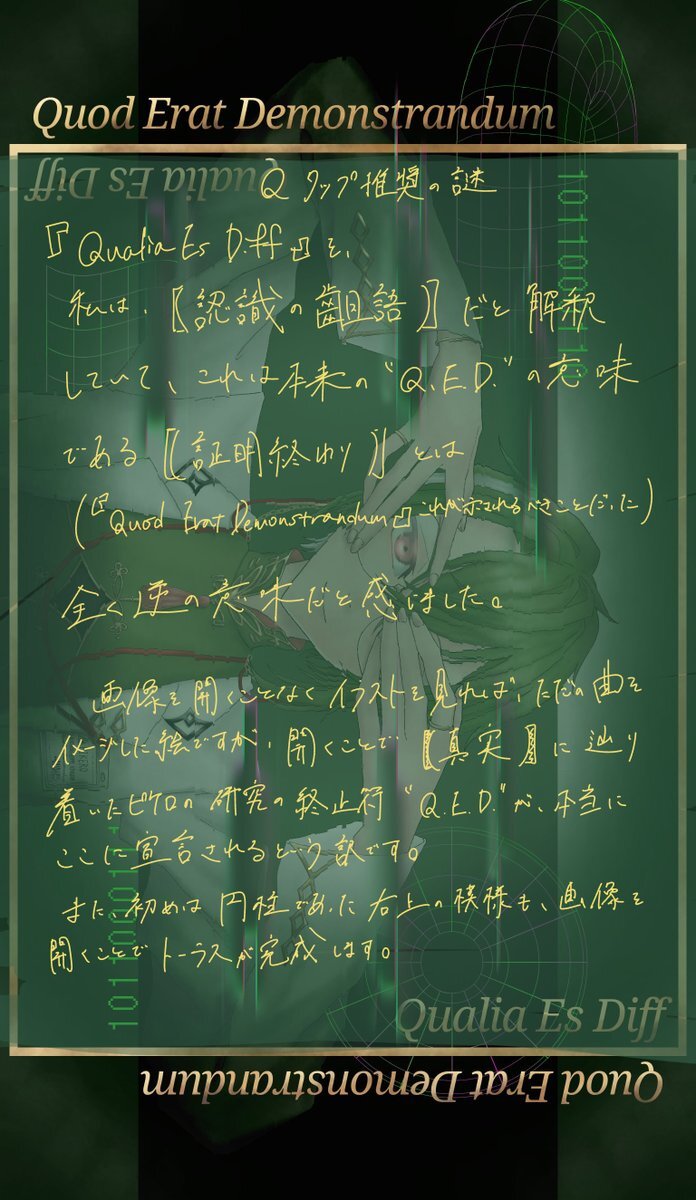 Quod Erat Demonstrandum
Qualia Es Diff
Q タップ推奨の謎
『Qualia Es Diff』を、
私は、〖認識の齟語〗だと解釈
していて、これは本来の"Q.E.D."の意味
である〖証明終わり〗とは
(『Quod Erat Demonstrandum』これが示されるべきことだった)
全く逆の意味だと感じました。
画像を開くことなくイラストを見れば、ただの曲を
イメージした絵ですが、開くことで【真実】に辿り
着いたピケロの研究の終止符"Q.E.D."が、本当に
ここに宣言されるという訳です。
また、初めは円柱であった右上の模様も、画像を
開くことでトーラスが完成します。
Qualia Es Diff
Quod Erat Demonstrandum